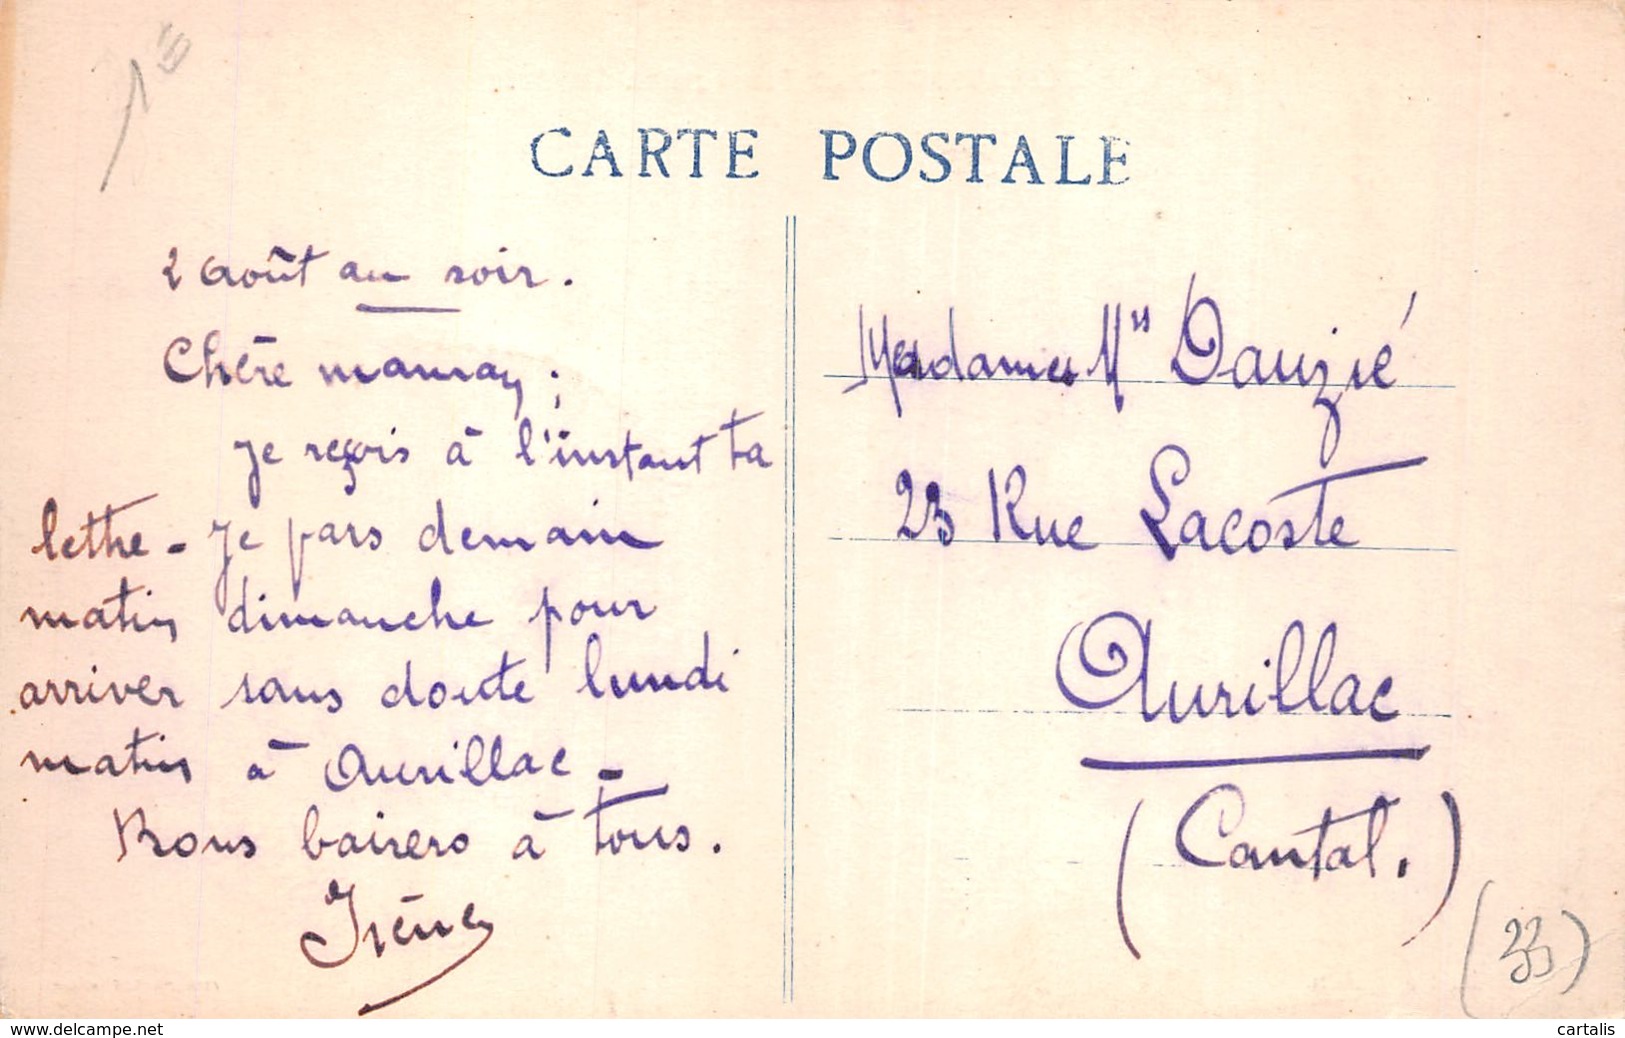 1€
CARTE POSTALE
2 août au soir.
Chère maman;
Je reçois à l'instant ta
lettre - Je pars demain
matin dimanche pour
arriver sans doute lundi
matin à Aurillac -
Bons baisers à tous.
Irène
Madame Dauzié
23 Rue Lacoste
Aurillac
(Cantal.)
(33)
www.delcampe.net
cartalis